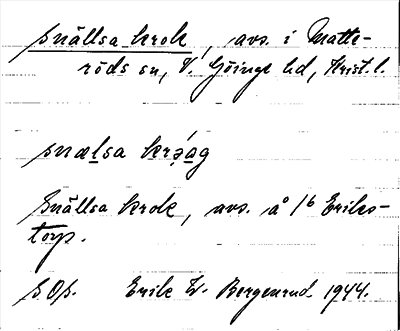 Snällsa krok, avs. i Matte-
röds sn, V. Göinge hd, Krist. l.
snälsa krǫ́ag
Snällsa krok, avs. å 1⁶ Eriks-
torp.
S.Os. Erik W. Bergenrud 1944.